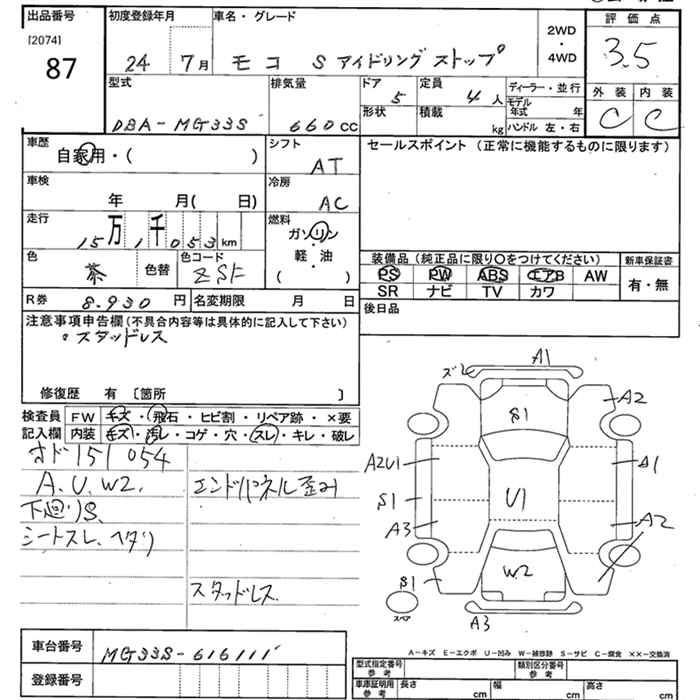 出品番号 初度登録年月 車名・グレード 2WD・4WD 評価点
[2074] 87 24 7月 モコ S アイドリングストップ 3.5
型式 排気量 ドア 5 定員 4人 ディーラー・並行 外装 内装
DBA-MG33S 660cc 形状 積載 kg モデル年式 年 ハンドル 左・右 C C
車歴 自家用・( ) シフト AT セールスポイント (正常に機能するものに限ります)
車検 年 月( 日) 冷房 AC
走行 15万1千053km 燃料 ガソリン 軽・油 ( )
色 茶 色替 色コード ZSF
装備品(純正品に限り○をつけてください) 新車保証書
PS PW ABS エアB AW 有・無
SR ナビ TV カワ
R券 8.930円 名変期限 月 日 後日品
注意事項申告欄(不具合内容等は具体的に記入して下さい)
。スタッドレス
修復歴 有 〔箇所 〕
検査員 FW キズ・飛石・ヒビ割・リペア跡・×要
記入欄 内装 キズ・汚レ・コゲ・穴・スレ・キレ・破レ
オド151054
A.U.W2. エンドパネル歪み
下廻りS.
シートスレ、ヘタリ
スタッドレス
A1
ズレ
A2
S1
A2U1 A1
S1 U1
A3 A2
W2
S1
スペア
A3
A-キズ E-エクボ U-凹み W-補修跡 S-サビ C-腐食 ××-交換済
車台番号 MG33S-616111
登録番号
型式指定番号 参考 類別区分番号 参考
車庫証明用 参考 長さ cm 幅 cm 高さ cm